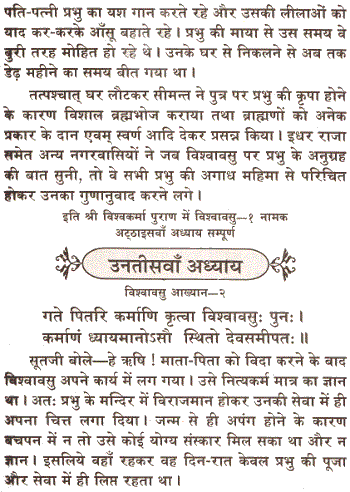 पति-पत्नी प्रभु का यश गान करते रहे और उसकी लीलाओं को
याद कर-करके आँसू बहाते रहे। प्रभु की माया से उस समय वे
बुरी तरह मोहित हो रहे थे। उनके घर से निकलने से अब तक
डेढ़ महीने का समय बीत गया था।
तत्पश्चात् घर लौटकर सीमन्त ने पुत्र पर प्रभु की कृपा होने
के कारण विशाल ब्रह्मभोज कराया तथा ब्राह्मणों को अनेक
प्रकार के दान एवम् स्वर्ण आदि देकर प्रसन्न किया। इधर राजा
समेत अन्य नगरवासियों ने जब विश्वावसु पर प्रभु के अनुग्रह
की बात सुनी, तो वे सभी प्रभु की अगाध महिमा से परिचित
होकर उनका गुणानुवाद करने लगे।
इति श्री विश्वकर्मा पुराण में विश्वावसु—१ नामक
अट्ठाइसवाँ अध्याय सम्पूर्ण
उनतीसवाँ अध्याय
विश्वावसु आख्यान—२
गते पितरि कर्माणि कृत्वा विश्वावसुः पुनः।
कर्माणं ध्यायमानोऽसौ स्थितो देवसमीपतः॥
सूतजी बोले—हे ऋषि! माता-पिता को विदा करने के बाद
विश्वावसु अपने कार्य में लग गया। उसे नित्यकर्म मात्र का ज्ञान
था। अतः प्रभु के मन्दिर में विराजमान होकर उनकी सेवा में ही
अपना चित्त लगा दिया। जन्म से ही अपंग होने के कारण
बचपन में न तो उसे कोई योग्य संस्कार मिल सका था और न
ज्ञान। इसलिये वहाँ रहकर वह दिन-रात केवल प्रभु की पूजा
और सेवा में ही लिप्त रहता था।